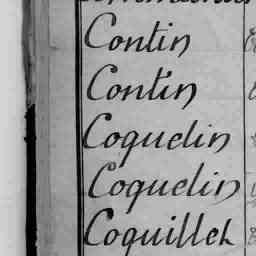 Contin
Contin
Coquelin
Coquelin
Coquillet